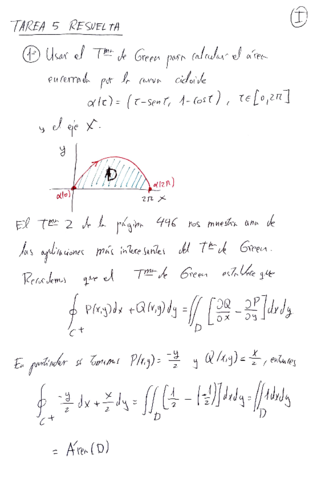 I
TAREA 5 RESUELTA
1º Usar el T^ma de Green para calcular el área
encerrada por la curva cicloide
α(t) = (t - sent, 1 - cost), t ∈ [0, 2π]
y el eje X.
y
D
α(0)
α(2π)
2π x
El T^ma 2 de la página 446 nos muestra una de
las aplicaciones más interesantes del T^ma de Green.
Recordemos que el T^ma de Green establece que
∮_{C+} P(x,y)dx + Q(x,y)dy = ∬_D [∂Q/∂x - ∂P/∂y] dxdy
En particular si tomamos P(x,y) = -y/2 y Q(x,y) = x/2, entonces
∮_{C+} -y/2 dx + x/2 dy = ∬_D [1/2 - (-1/2)] dxdy = ∬_D 1dxdy
= Área(D)